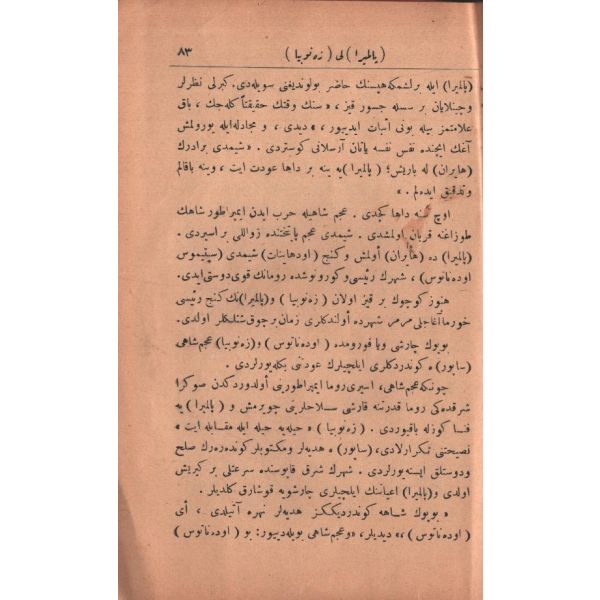 ( پالمیرا ) لی ( زه نوبیا ) ٨٣
(پالمیرا) ایله برلشمكه هپسنك حاضر بولوندیغنی سویله‌دی. كبرلی نظرلر
وچینلایان بر سسله جسور قیز ، « سنك وقتك حقیقتاً كله‌جك ، باق
علامتمز بیله بونی اثبات ایدییور ، » دیدی ، و مجادله‌ایله یورولمش
آغك ایچنده نفس نفسه یاتان آرسلانی كوستردی . « شیمدی برادرك
(هایران) له باریش؛ ( پالمیرا )یه ینه بر داها عودت ایت ، وینه باقالم
وتدقیق ایده‌لم . »
اوچ سنه داها كچدی . عجم شاهیله حرب ایدن ایمپراطور شاهك
طوزاغنه قربان اولمشدی . شیمدی عجم پایتختنده زواللی بر اسیردی .
(پالمیرا) ده (هایران) اولمش و كنج (اودهاینات) شیمدی (سپتیموس
اوده‌ناتوس) ، شهرك رئیسی و كورونوشده رومانك قوی دوستی ایدی.
هنوز كوچوك بر قیز اولان ( زه‌نوبیا ) و(پالمیرا)نك كنج رئیسی
خورما آغاجلی مرمر شهرده اولدنكلری زمان بر چوق شنلكلر اولدی.
بویوك چارشی ویا فورومده ( اوده‌ناتوس ) و(زه‌نوبیا) عجم‌شاهی
(ساپور) ه كوندردكلری ایلچیلرك عودتنی بكله‌یورلردی .
چونكه عجم‌شاهی، اسیری روما ایمپراطورینی اولدوردكدن صوكرا
شرقده‌كی روما قدرتنه قارشی سلاحلرینی چویرمش و ( پالمیرا ) یه
فنا كوزله باقیوردی . ( زه‌نوبیا ) « حیله‌یه حیله ایله مقابله ایت »
نصیحتنی تكرارلادی، (ساپور) ه هدیه‌لر و مكتوبلر كونده‌ره‌رك صلح
ودوستلق ایسته‌یورلردی . شهرك شرق قاپوسنده سرعتلی بر كیریش
اولدی و(پالمیرا) اعیاننك ایلچیلری چارشویه قوشارق كلدیلر .
« بویوك شاهه كوندردیككز هدیه‌لر نهره آتیلدی ، أی
( اوده‌ناتوس ) ،» دیدیلر، «وعجم‌شاهی بویله دییور: بو ( اوده‌ناتوس )